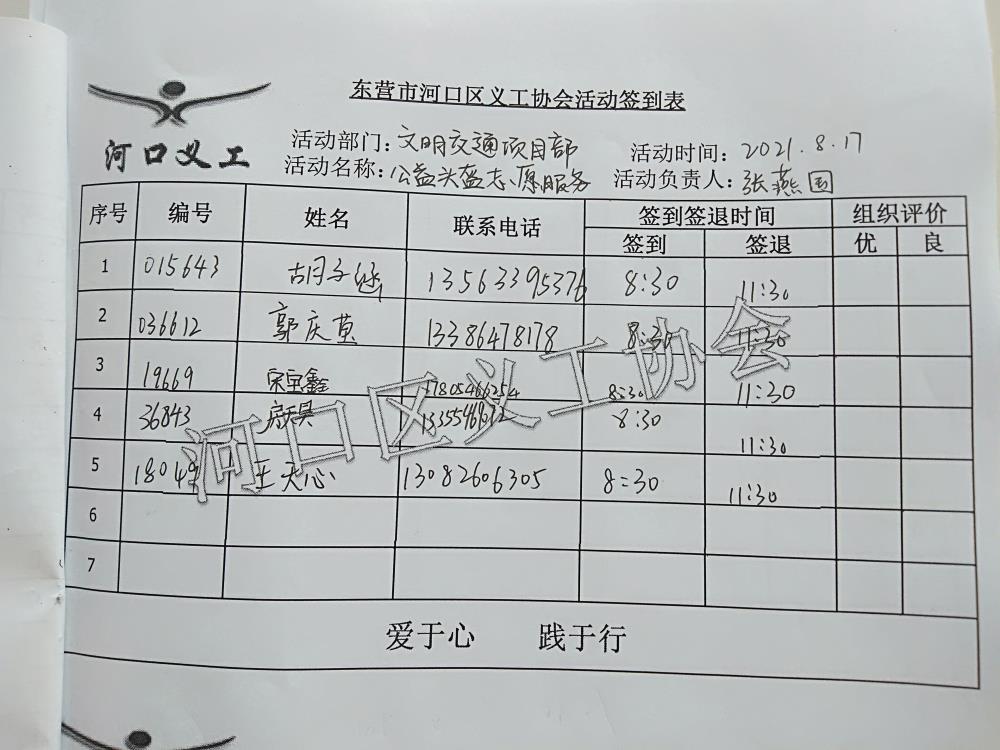 东营市河口区义工协会活动签到表
河口义工
活动部门：文明交通项目部 活动时间：2021.8.17
活动名称：公益头盔志愿服务 活动负责人：张燕国
序号 编号 姓名 联系电话 签到签退时间 组织评价
签到 签退 优 良
1 015643 胡子涵 13563395376 8:30 11:30
2 036612 郭庆黄 13386478178 8:30 11:30
3 19669 宋宝鑫 17805466254 8:30 11:30
4 36843 8:30 11:30
5 18049 王天心 13082606305 8:30 11:30
6
7
河口区义工协会
爱于心 践于行